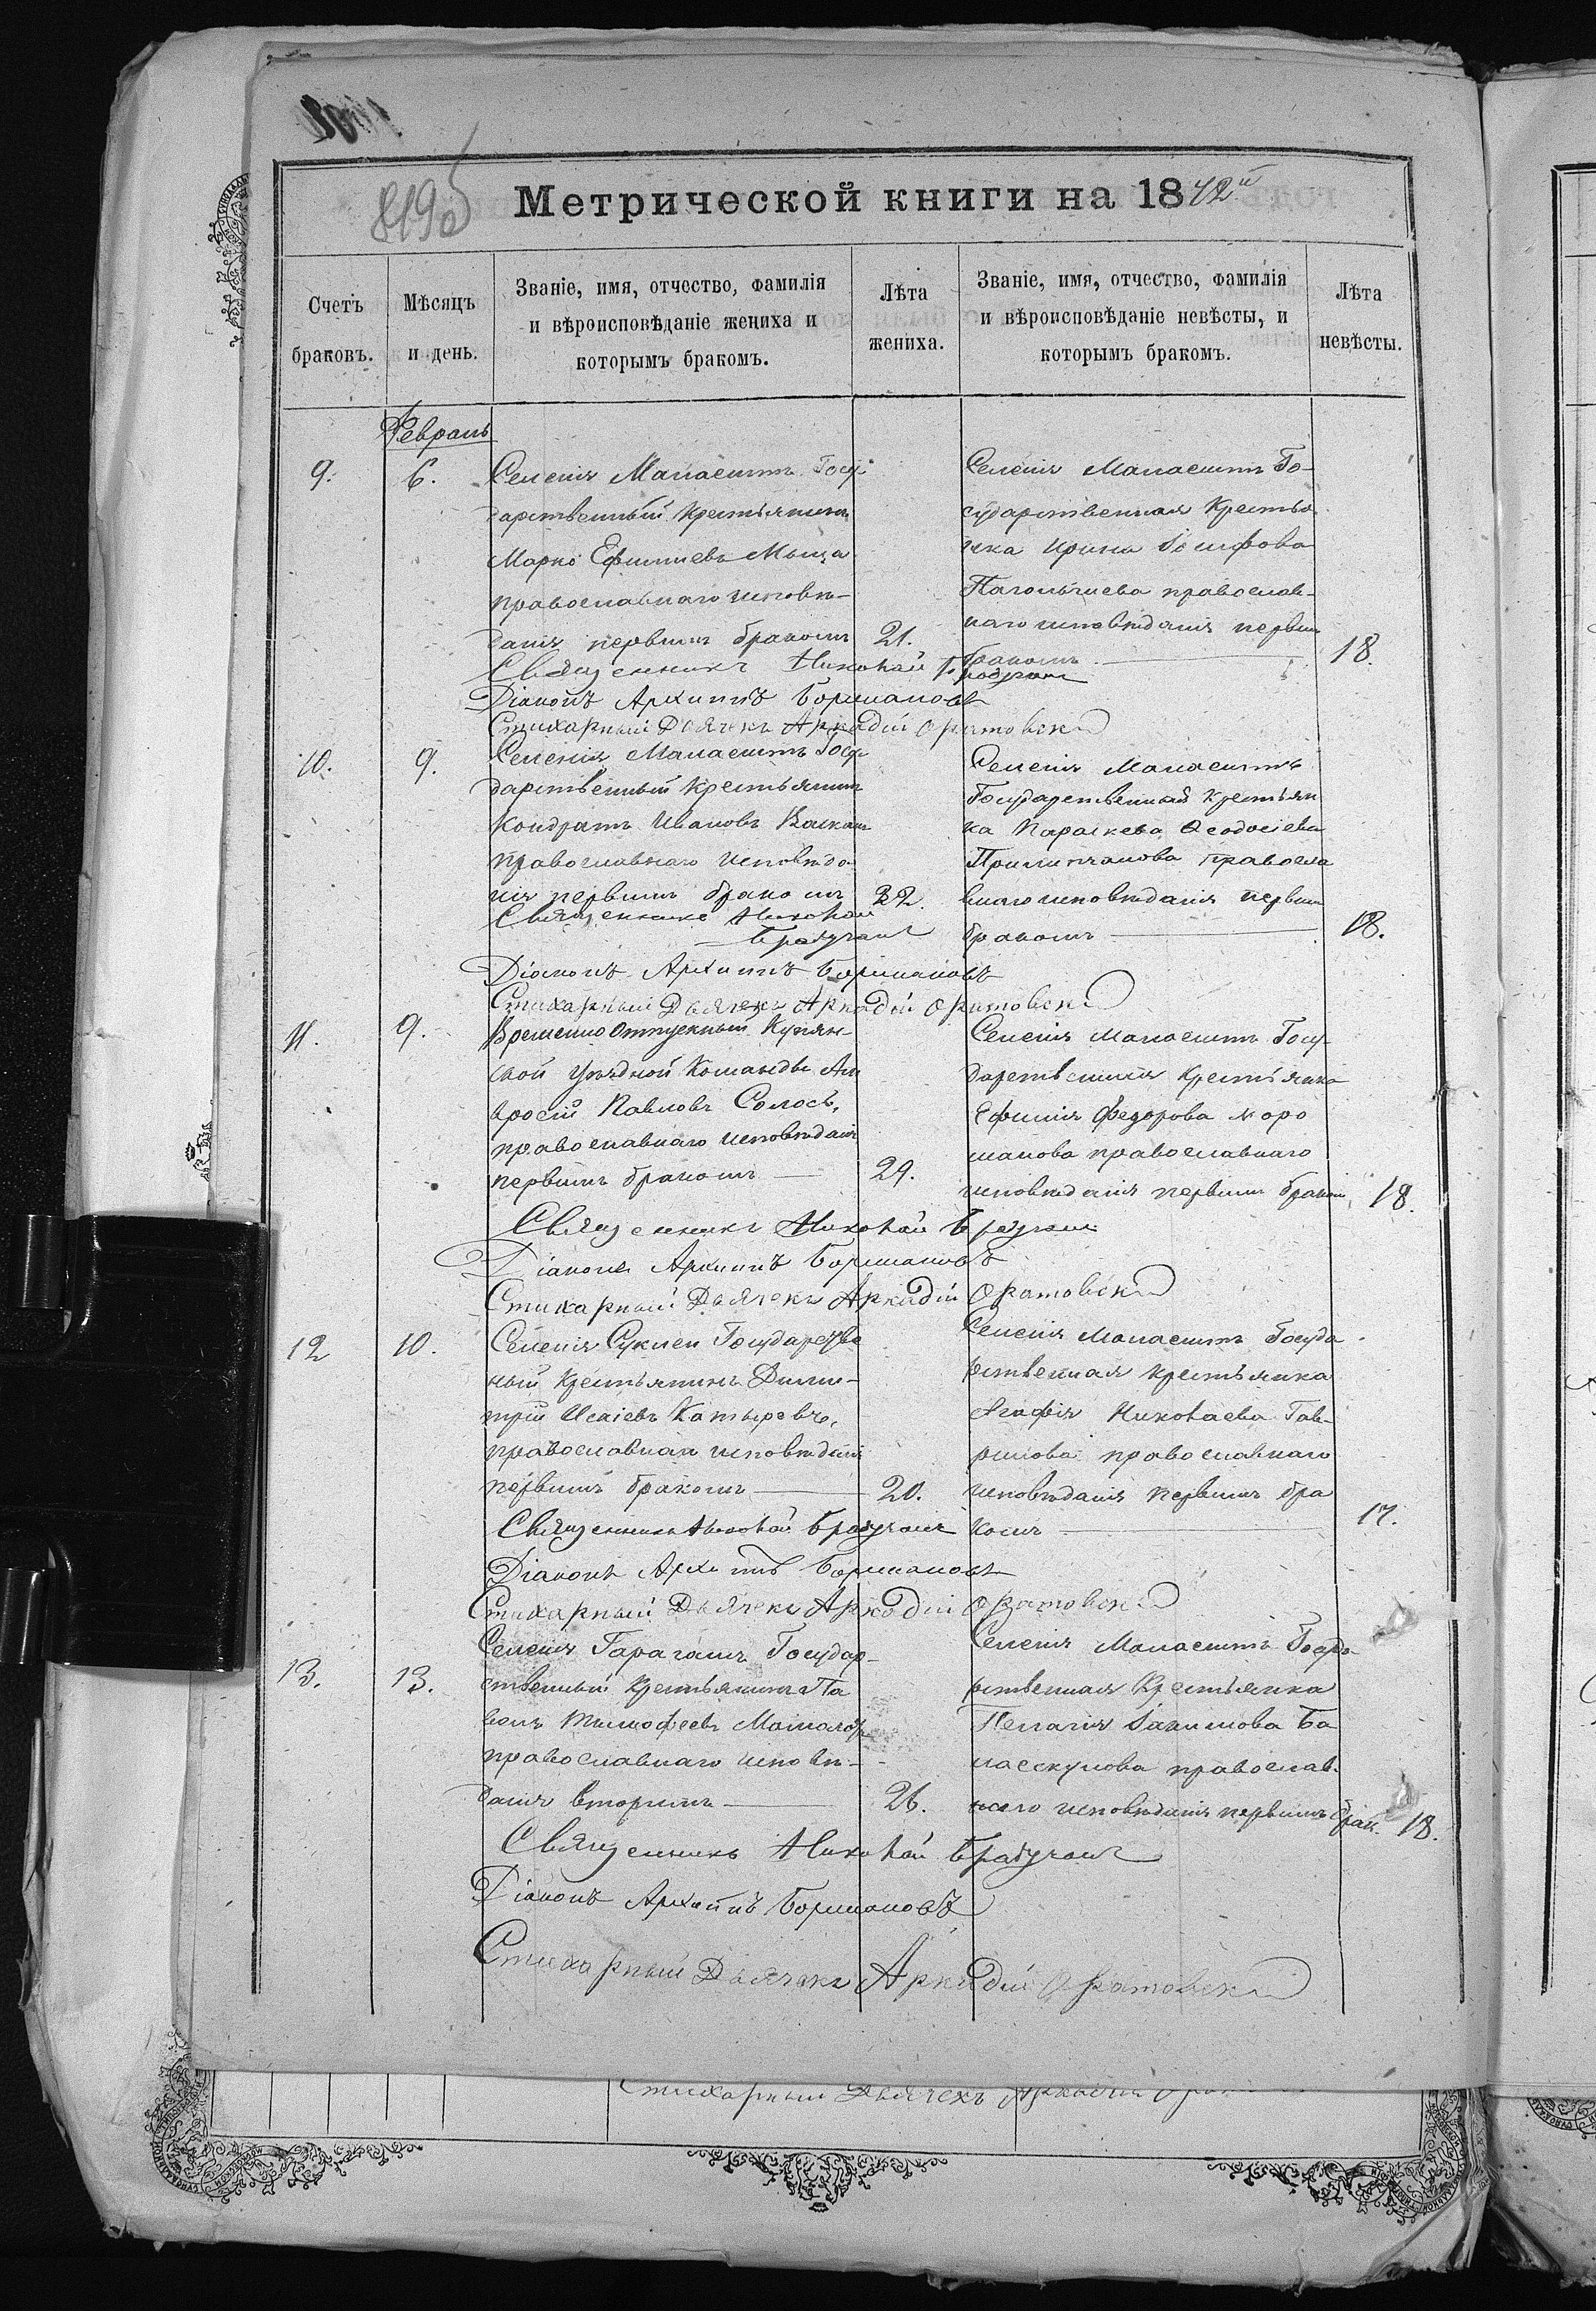 819б
Метрической книги на 1872й
Счетъ браковъ.
Мѣсяцъ и день.
Званіе, имя, отчество, фамилія
и вѣроисповѣданіе жениха и
которымъ бракомъ.
Лѣта жениха.
Званіе, имя, отчество, фамилія
и вѣроисповѣданіе невѣсты, и
которымъ бракомъ.
Лѣта невѣсты.
Февраль
9.
6.
Селенія Манаештъ Госу
дарственный Крестьянинъ
Марко Ефимиевъ Мыца
православнаго исповѣ-
данія первымъ бракомъ
21.
Селенія Манаештъ Го-
сударственная Крестья
нка Ирина Іосифова
православ-
наго исповѣданія первым
бракомъ
18.
Священникъ Николай Брадучанъ
Діаконъ Архиппъ Боршановъ
Стихарный Дьячекъ Аркадій Оратовскій
10.
9.
Селенія Манаештъ Госу
дарственный крестьянинъ
Кондратъ Ивановъ
православнаго исповѣда
нія первымъ бракомъ
22.
Селенія Манаештъ
Государственная крестьян
ка Параскева Ѳеодосіева
правосла
внаго исповѣданія первым
бракомъ
18.
Священникъ Николай
Брадучанъ
Діаконъ Архиппъ Боршановъ
Стихарный Дьячекъ Аркадій Оратовскій
11.
9.
Временно Отпускный
ской Уѣздной Команды Ам
вросій Павловъ Солосъ,
православнаго исповѣданія
первымъ бракомъ
29.
Селенія Манаештъ Госу-
дарственная Крестьянка
Ефимія Федорова Моро
шанова православнаго
исповѣданія первымъ браком
18.
Священникъ Николай Брадучанъ
Діаконъ Архиппъ Боршановъ
Стихарный Дьячекъ Аркадій Оратовскій
12
10.
Селенія Суклеи Государстве
ный Крестьянинъ Дими-
трій Исаіевъ Катыревъ,
православная исповѣданія
первымъ бракомъ
20.
Селенія Манаештъ Госуда
рственная крестьянка
Агафія Николаева Гав-
рилова православнаго
исповѣданія первымъ бра
комъ
17.
Священникъ Николай Брадучанъ
Діаконъ Архиппъ Боршановъ
Стихарный Дьячекъ Аркадій Оратовскій
13.
13.
Селенія Гарагашъ Государ-
ственный Крестьянинъ Па
велъ Тимофеевъ
православнаго исповѣ-
данія вторымъ
26.
Селенія Манаештъ Госуда-
рственная Крестьянка
Пелагія Іакимова Ба
православ-
наго исповѣданія первымъ брак.
18.
Священникъ Николай Брадучанъ
Діаконъ Архиппъ Боршановъ
Стихарный Дьячекъ Аркадій Оратовскій
Стихарный Дьячекъ Аркадій